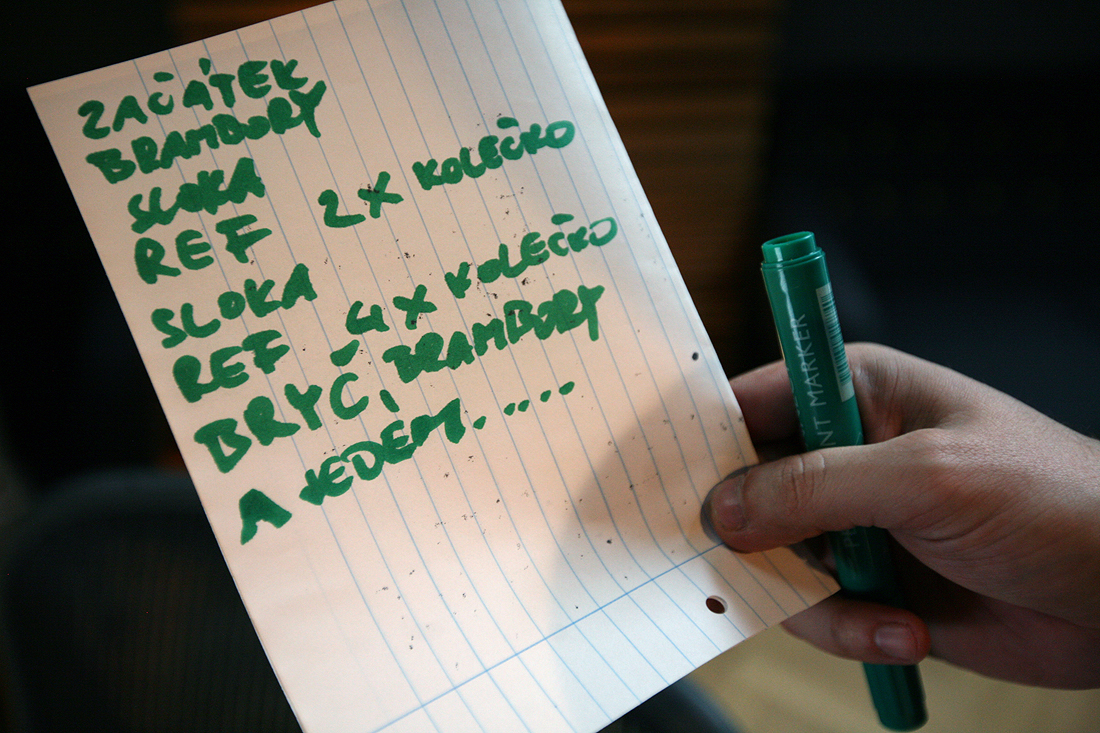 ZAČÁTEK
BRAMBORY
SLOKA
REF 2X KOLEČKO
SLOKA
REF 4X KOLEČKO
BRYČ, BRAMBORY
A JEDEM.....
NT MARKER